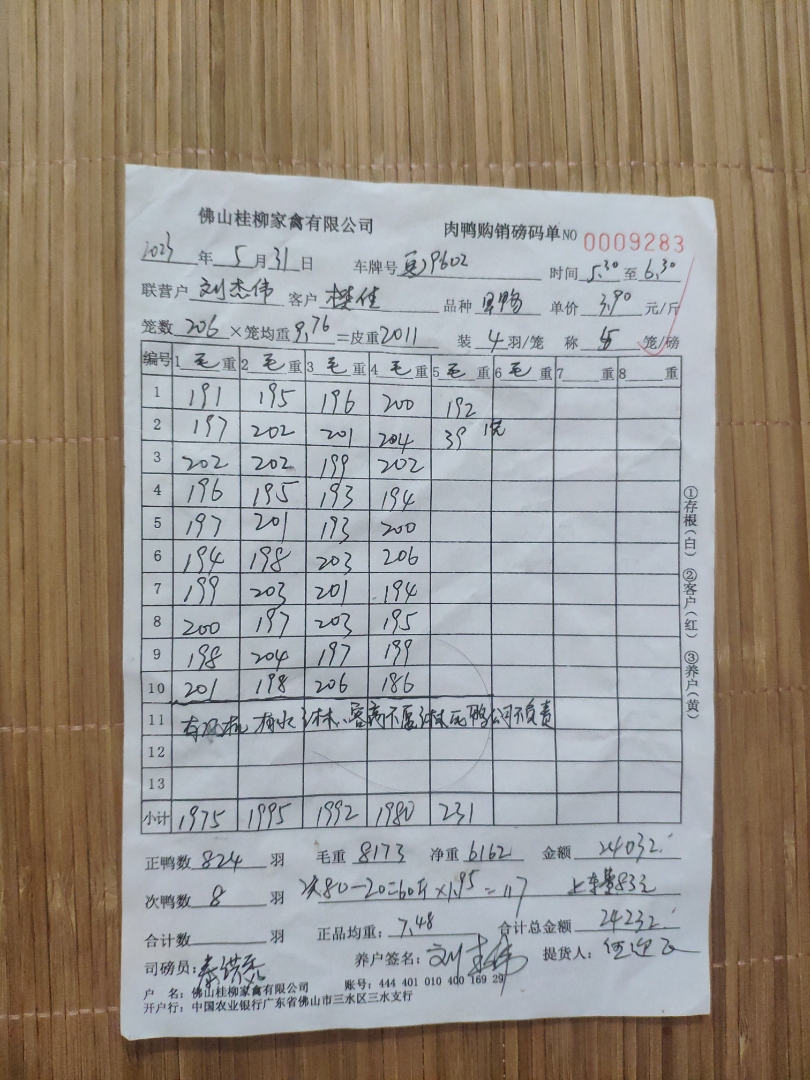 佛山桂柳家禽有限公司 肉鸭购销磅码单 NO 0009283
2023 年 5 月 31 日 车牌号 9602 时间 5.30 至 6.30
联营户 刘杰伟 客户 樊佳 品种 单价 3.90 元/斤
笼数 206 ×笼均重 9.76 =皮重 2011 装 4 羽/笼 称 5 笼/磅
编号 1 毛 重 2 毛 重 3 毛 重 4 毛 重 5 毛 重 6 毛 重 7 重 8 重
1 191 195 196 200 192
2 197 202 201 204 39
3 202 202 199 202
4 196 195 193 194
5 197 201 193 200
6 194 198 203 206
7 199 203 201 194
8 200 197 203 195
9 198 204 197 199
10 201 198 206 186
11 死鸭公司不负责
12
13
小计 1975 1995 1992 1980 231
正鸭数 824 羽 毛重 8173 净重 6162 金额 24032
次鸭数 8 羽 次80-20=60斤×1.95=117 上车费83元
合计数 羽 正品均重: 7.48 合计总金额 24232
司磅员: 养户签名: 刘杰伟 提货人:
户 名: 佛山桂柳家禽有限公司 账号: 444 401 010 400 169 29
开户行: 中国农业银行广东省佛山市三水区三水支行
①存根(白) ②客户(红) ③养户(黄)